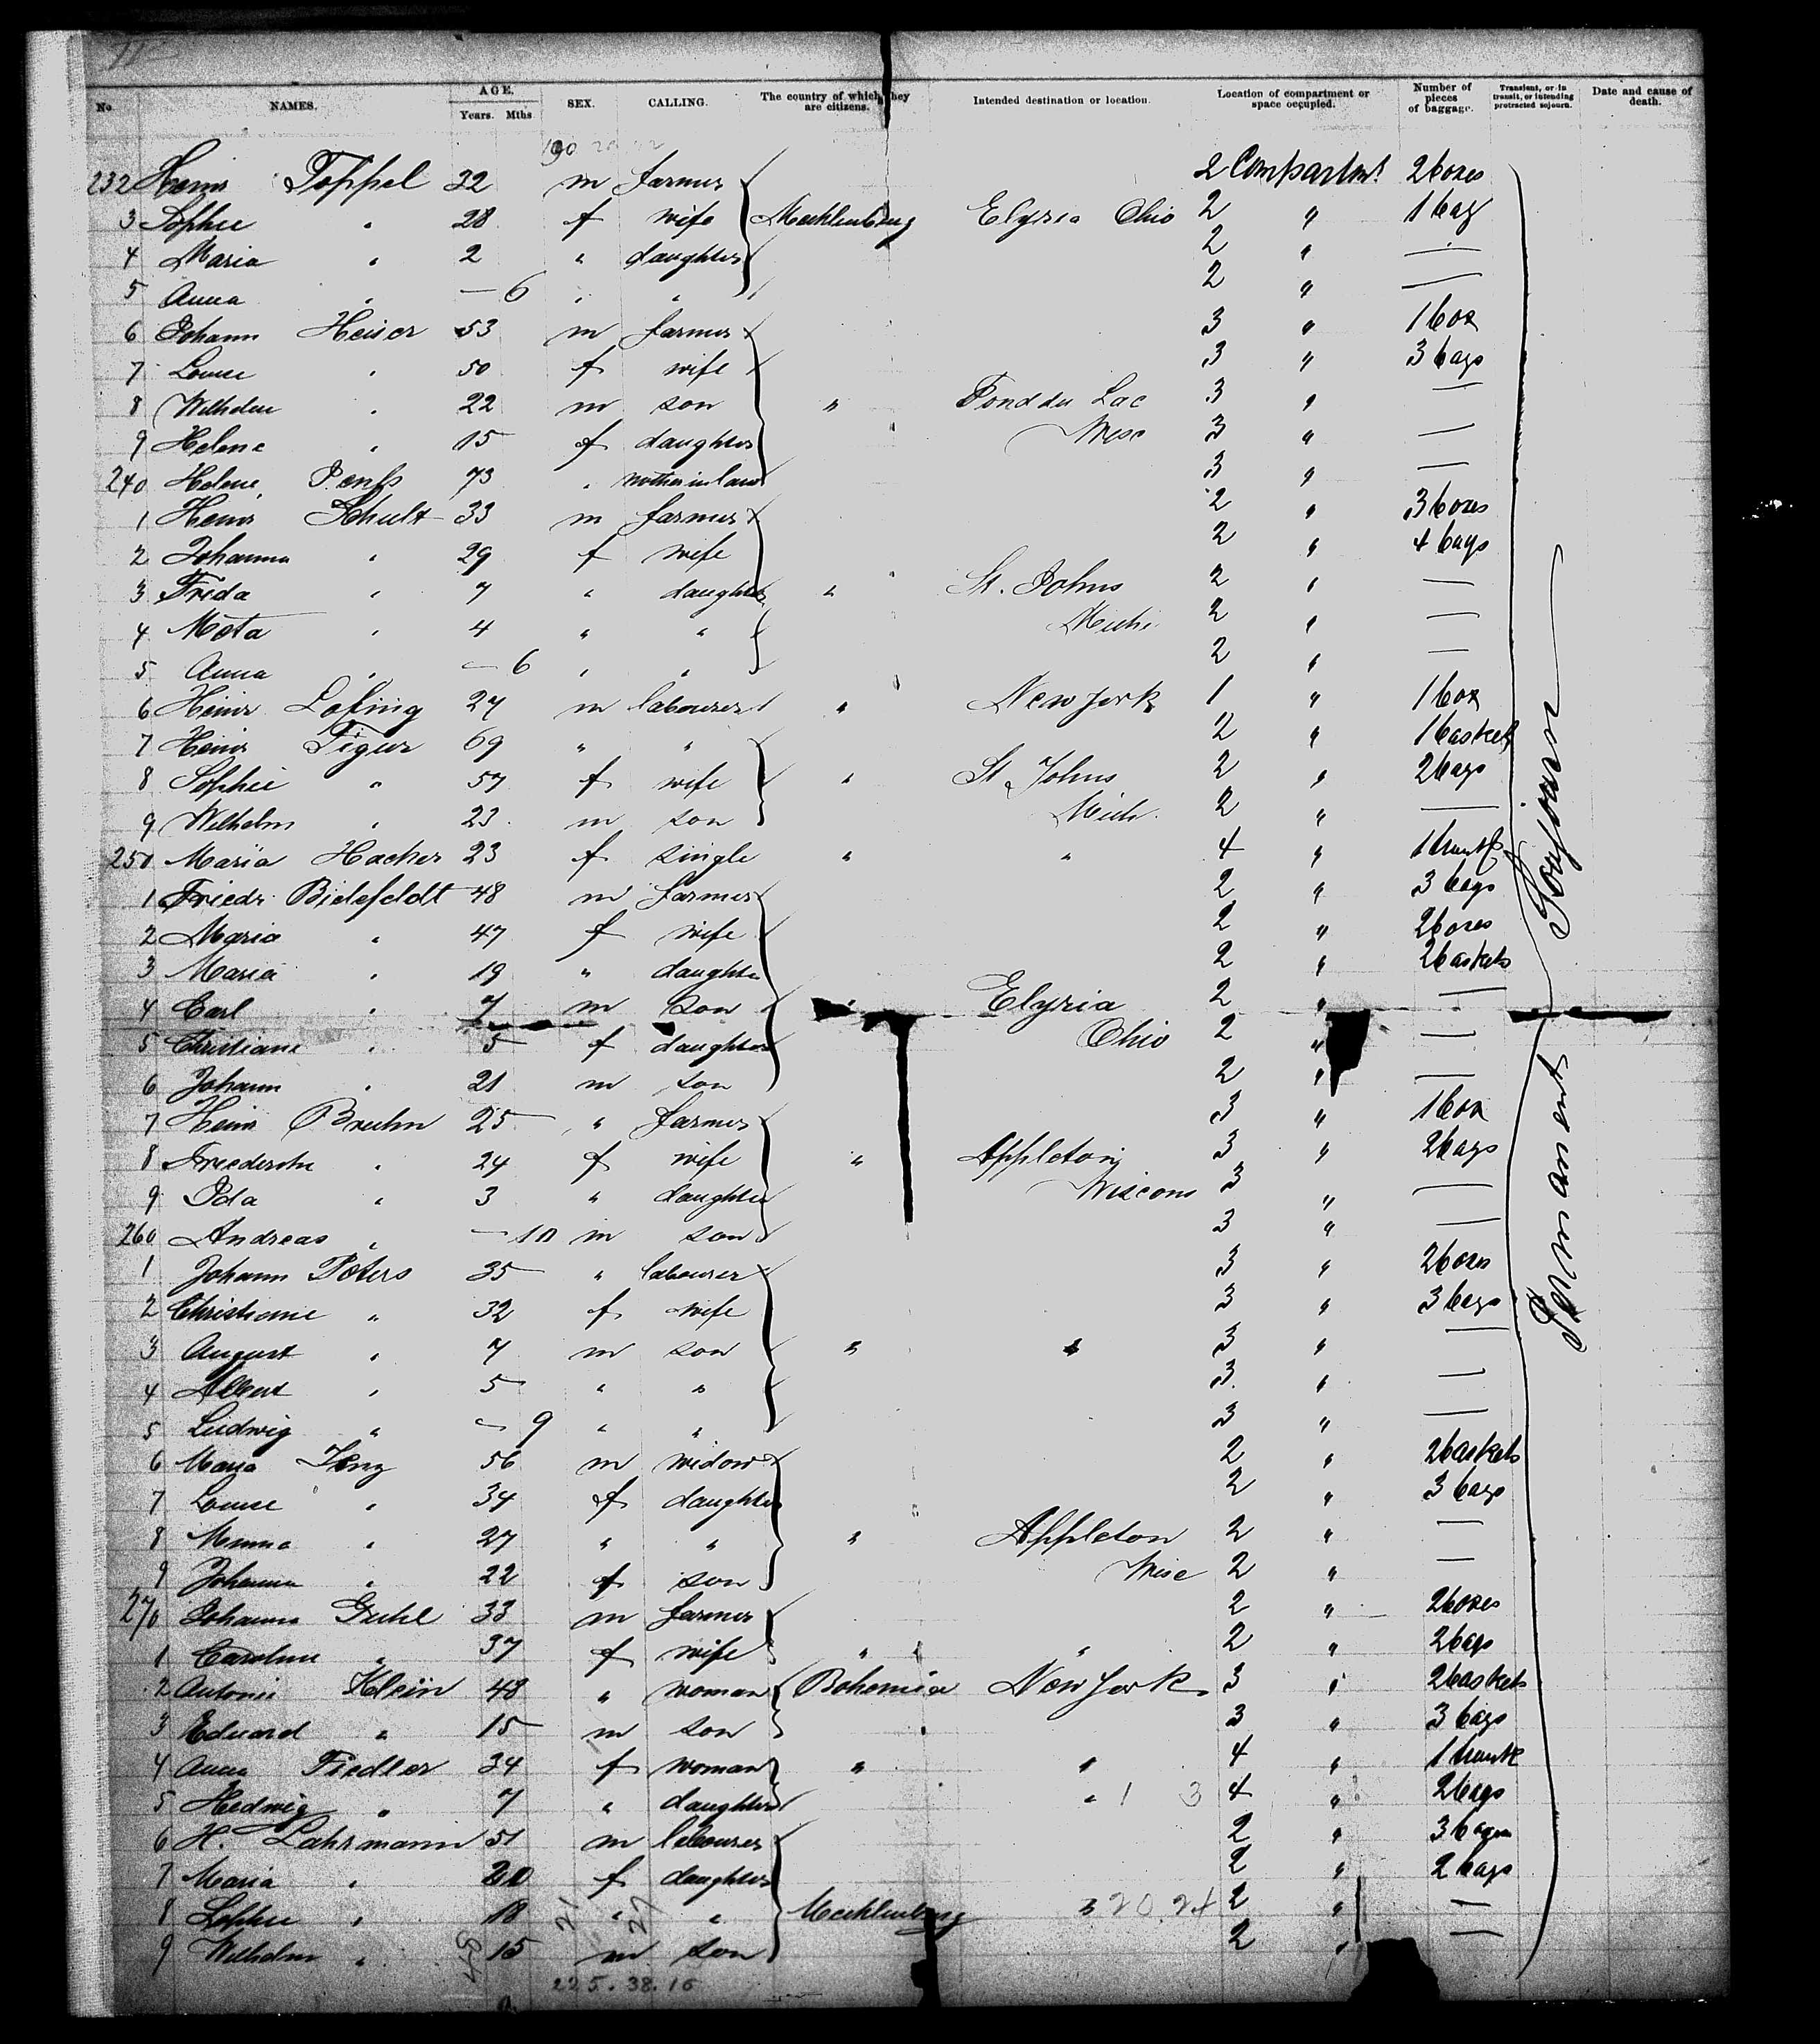 No. NAMES. AGE. Years. Mths SEX. CALLING. The country of which they are citizens. Intended destination or location. Location of compartment or space occupied. Number of pieces of baggage. Transient, or in transit, or intending protracted sojourn. Date and cause of death.
232 Heinr Toppel 32 m farmer 2 Compartmt 2 boxes
3 Sophie " 28 f wife Mecklenburg Elyria Ohio 2 " 1 bag
4 Maria " 2 " daughter 2 " —
5 Anna " — 6 " " 2 " —
6 Johann Heiser 53 m farmer 3 " 1 box
7 Louise " 50 f wife 3 " 3 bags
8 Wilhelm " 22 m son " Fond du Lac 3 " —
9 Helene " 15 f daughter Wisc 3 " —
240 Helene 73 " mother in law 3 " —
1 Heinr Schult 33 m farmer 2 " 3 boxes
2 Johanna " 29 f wife 2 " 4 bags
3 Frida " 7 " daughter " St. Johns 2 " —
4 Meta " 4 " " Michi 2 " —
5 Anna " — 6 " " 2 " —
6 Heinr Lafing 27 m labourer " New York 1 " 1 box
7 Heinr Figur 69 " " 2 " 1 basket
8 Sophie " 57 f wife " St Johns 2 " 2 bags
9 Wilhelm " 23 m son Mich. 2 " —
250 Maria Hacker 23 f single " " 4 " 1 trunk
1 Friedr Bielefeldt 48 m farmer 2 " 3 bags
2 Maria " 47 f wife 2 " 2 boxes
3 Maria " 19 " daughter 2 " 2 baskets
4 Carl " 7 m son " Elyria 2 " —
5 Christiane " 5 f daughter Ohio 2 " —
6 Johann " 21 m son 2 " —
7 Heinr Bruhn 25 " farmer 3 " 1 box
8 " 24 f wife " Appleton 3 " 2 bags
9 Ida " 3 " daughter Wiscons 3 " —
260 Andreas " — 10 m son 3 " —
1 Johann Peters 35 " labourer 3 " 2 boxes
2 Christiane " 32 f wife 3 " 3 bags
3 August " 7 m son " " 3 " —
4 Albert " 5 " " 3 " —
5 Ludwig " — 9 " " 3 " —
6 Maria 56 m widow 2 " 2 baskets
7 Louise " 34 f daughter 2 " 3 bags
8 Minna " 27 " " " Appleton 2 " —
9 Johanna " 22 f son Wisc 2 " —
270 Johann Guhl 33 m farmer 2 " 2 boxes
1 Caroline " 37 f wife " " " 2 " 2 bags
2 Antonie Klein 48 " woman Bohemia New York 3 " 2 baskets
3 Eduard " 15 m son 3 " 3 bags
4 Anna Fiedler 34 f woman " " 4 " 1 trunk
5 Hedwig " 7 " daughter " 1 3 4 " 2 bags
6 H. Lahrmann 51 m labourer 2 "
7 Maria " 20 f daughter 2 " 2 bags
8 Sophie " 18 " " Mecklenburg 2 " —
9 Wilhelm " 15 m son 2 " —
225.38.16
Permanent Sojourn